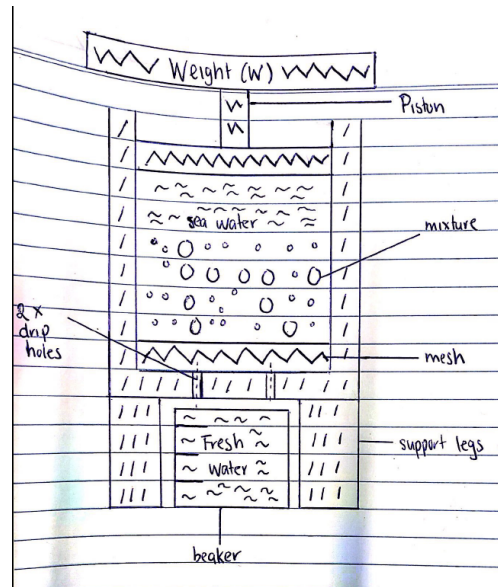 Weight (W)
Piston
sea water
mixture
2x
drip
holes
mesh
Fresh
Water
support legs
beaker